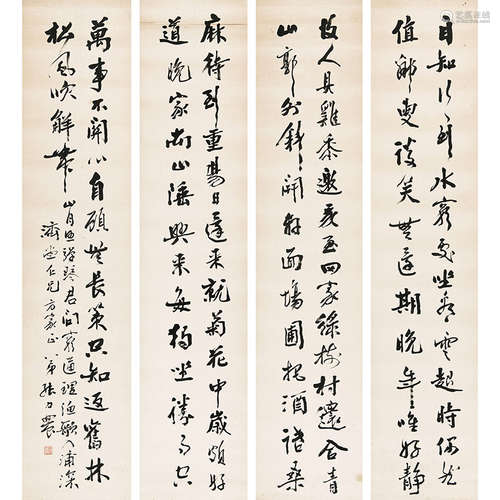 自知行到水窮處坐看雲起時偶然
值鄰叟談笑無還期晚年唯好靜
故人具雞黍邀我至田家綠樹村邊合青
山郭外斜開軒面場圃把酒話桑
麻待到重陽日還來就菊花中歲頗好
道晚家南山陲興來每獨坐勝事空
萬事不關心自顧無長策空知返舊林
松風吹解帶山月照彈琴君問窮通理漁歌入浦深
仁兄方家正 弟張力農